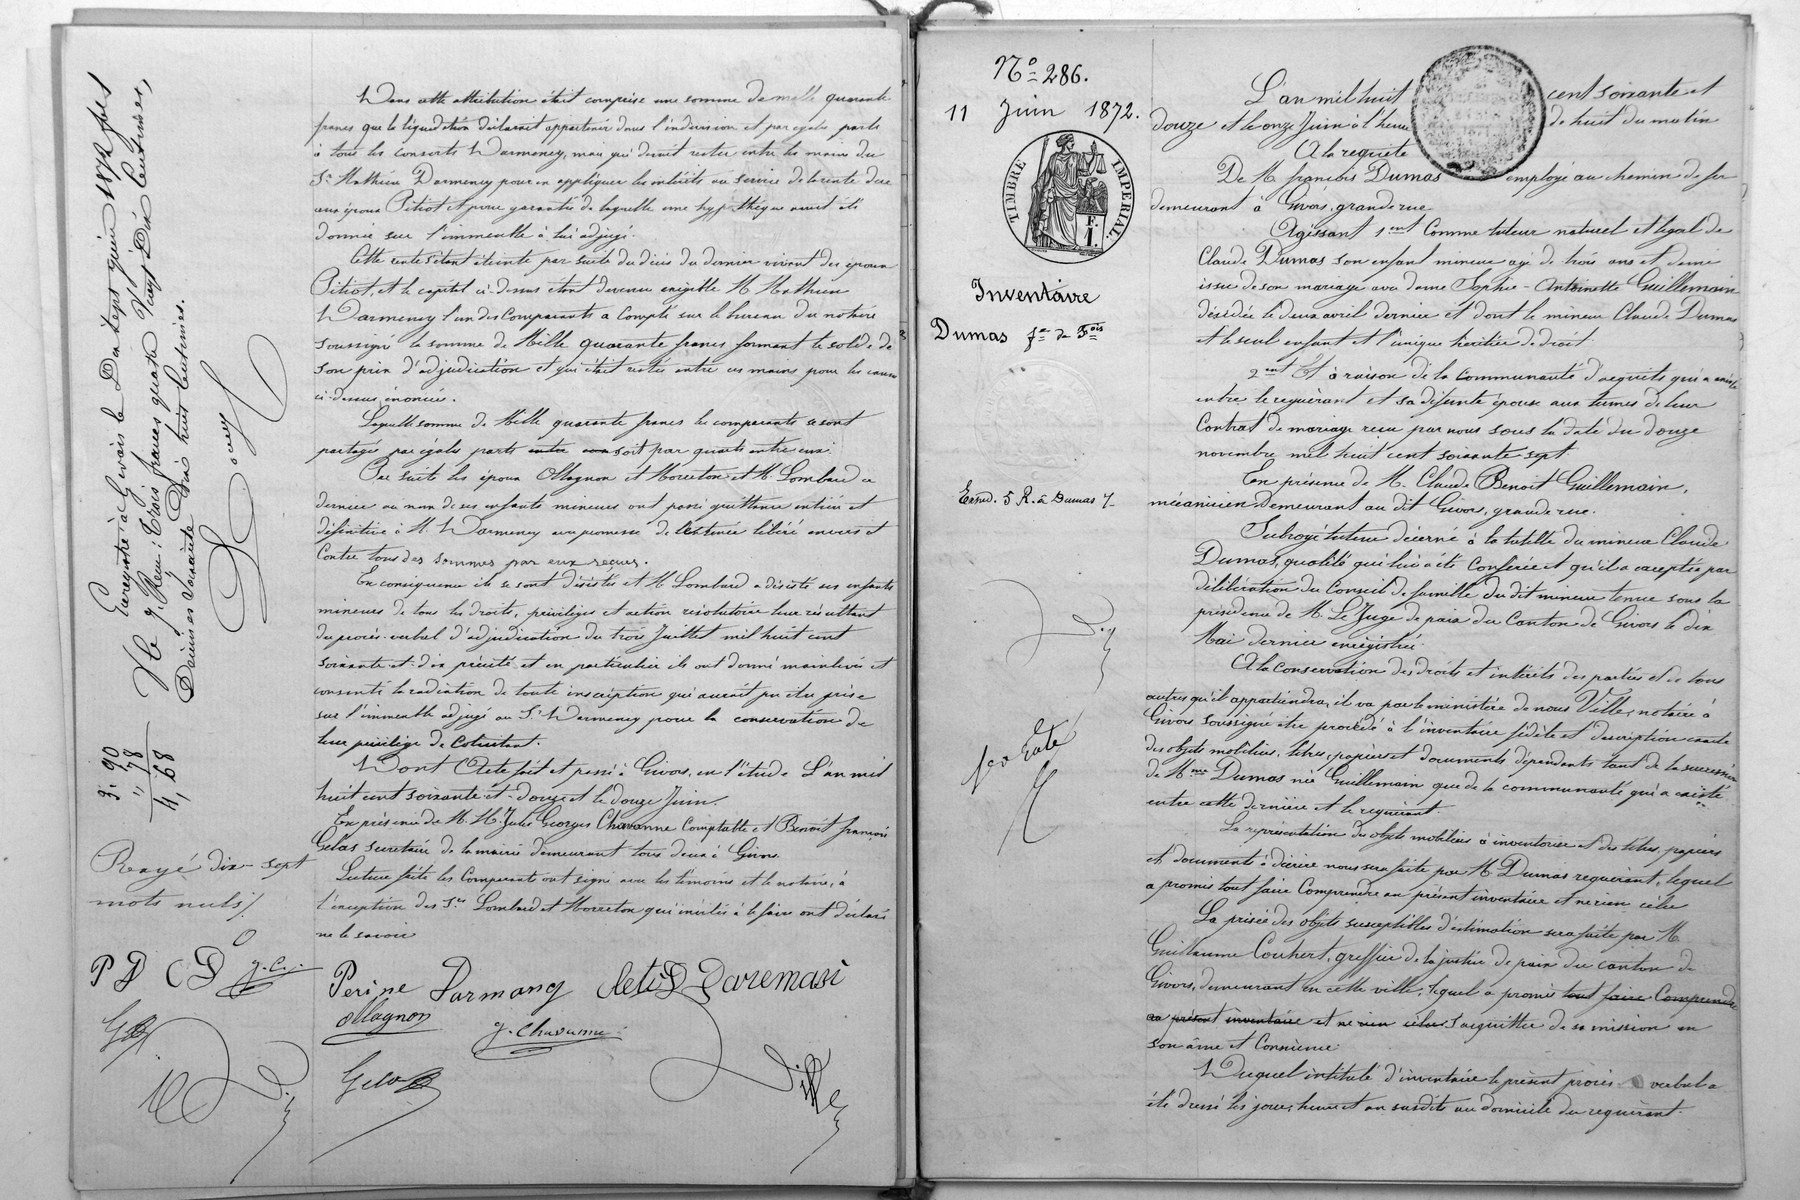 Dans cette attribution était comprise une somme de mille quarante
francs que le liquidation déclarait appartenir dans l'indivision et par égales parts
à tous les consorts Darmency, mais qui devait rester entre les mains du
Sr Mathieu Darmency pour en appliquer les intérêts au service de la rente due
aux époux Pitiot et pour garantie de laquelle une hypothèque avait été
donnée sur l'immeuble à lui adjugé.
Cette rente s'étant éteinte par suite du décès du dernier vivant des époux
Pitiot, et le capital ci-dessus étant devenu exigible M. Mathieu
Darmency l'un des Comparants a compté sur le bureau du notaire
soussigné la somme de Mille quarante francs formant le solde de
son prix d'adjudication et qui était restée entre ses mains pour les causes
ci-dessus énoncées.
Laquelle somme de Mille quarante francs les comparants se sont
partagée par égales parts entre eux soit par quart entre eux
Par suite les époux Magnon et Morreton et M. Lombard ce
dernier au nom de ses enfants mineurs ont passé quittance entière et
définitive à M. Darmency avec promesse de l'en tenir libéré envers et
Contre tous des sommes par eux reçues.
En conséquence ils se sont désistés et M Lombard a désisté ses enfants
mineurs de tous les droits, privilèges et action résolutoire leur résultant
du procès-verbal d'adjudication du trois Juillet mil huit cent
soixante et dix précité et en particulier ils ont donné mainlevée et
consenti la radiation de toute inscription qui aurait pu être prise
sur l'immeuble adjugé au Sr Darmency pour la conservation de
leur privilège de Colicitant.
Dont Acte fait et passé à Givors, en l'étude L'an mil
huit cent soixante et douze et le douze Juin.
En présence de M. M. Jules Georges Chavanne Comptable et Benoit François
Gelas secrétaire de la mairie demeurant tous deux à Givors
Lecture faite les Comparants ont signé avec les témoins et le notaire, à
l'exception des Srs Lombard et Morreton qui invités à le faire ont déclaré
ne le savoir
Perine Darmancy
Magnon
J. Chavanne
Gelas
Ville
Enregistré à Givors le Dix sept juin 1872
Décimes soixante Dix huit Centimes.
3. 90
" 78
4, 68
Rayé dix sept
mots nuls
PD CD J.C.
No 286.
11 Juin 1872.
TIMBRE IMPERIAL.
F. I.
Inventaire
Dumas fe de Fois
L'an mil huit cent soixante et
douze et le onze Juin à l'heure de huit du matin
A la requête
De M. françois Dumas employé au chemin de fer
demeurant à Givors, grande rue
Agissant 1ent Comme tuteur naturel et légal de
Claude Dumas son enfant mineur agé de trois ans et demi
issu de son mariage avec dame Sophie-Antoinette Guillemain
décédée le deux avril dernier et dont le mineur Claude Dumas
est le seul enfant et l'unique héritier de droit.
2ent Et à raison de la Communauté d'acquêts qui a existé
entre le requérant et sa défunte épouse aux termes de leur
Contrat de mariage reçu par nous sous la date du douze
novembre mil huit cent soixante sept
En présence de M. Claude Benoit Guillemain,
mécanicien demeurant au dit Givors, grande rue.
Subrogé tuteur décerné à la tutelle du mineur Claude
Dumas, qualité qui lui a été Conférée et qu'il a acceptée par
délibération du Conseil de famille du dit mineur tenue sous la
présidence de M. Le Juge de paix du Canton de Givors le dix
Mai dernier enregistrée
A la Conservation des droits et intérêts des parties et de tous
autres qu'il appartiendra, il va par le ministère de nous Ville, notaire à
Givors soussigné etre procédé à l'inventaire fidèle et description exacte
des objets mobiliers, titres, papiers et documents dépendants tant de la succession
de Mme Dumas née Guillemain que de la communauté qui a existé
entre cette dernière et le requérant.
La représentation des objets mobiliers à inventorier et des titres, papiers
et documents à décrire nous sera faite par M. Dumas requérant, lequel
a promis tout faire Comprendre au présent inventaire et ne rien céler
La prisée des objets susceptibles d'estimation sera faite par M.
Guillaume Couhert, greffier de la justice de paix du canton de
Givors, demeurant en cette ville, lequel a promis tout faire Comprendre
au présent inventaire et ne rien céler s'acquitter de sa mission en
son âme et Conscience
Duquel intitulé d'inventaire le présent procès-verbal a
été dressé les jour, heure et an susdits au domicile du requérant.